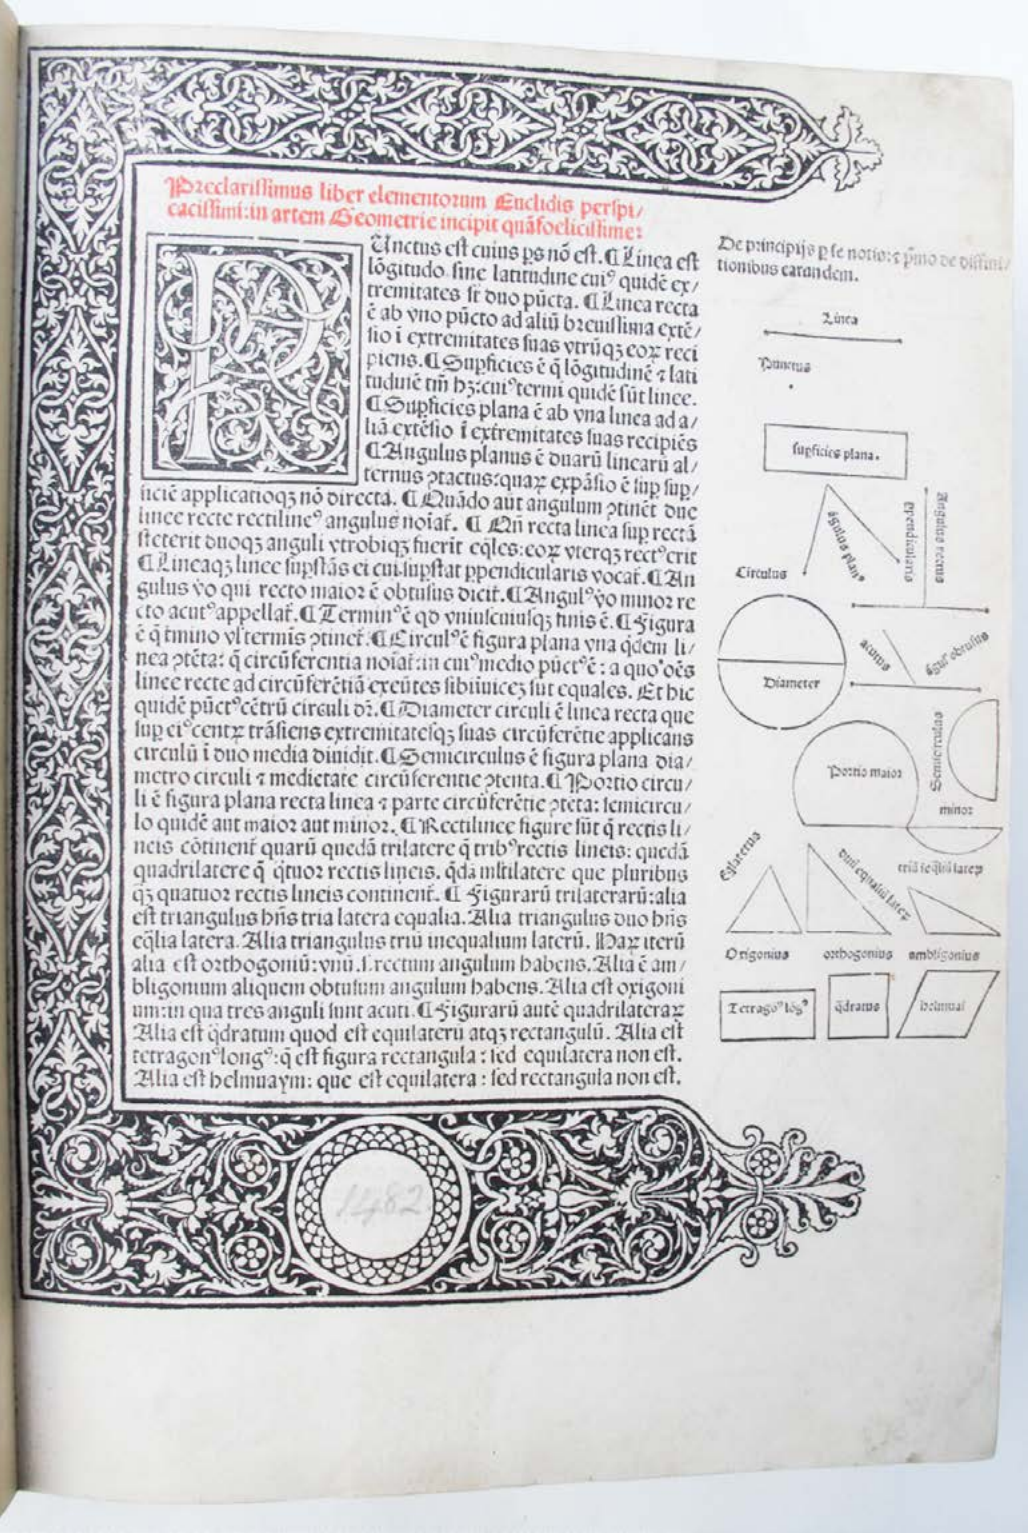 Preclarissimus liber elementorum Euclidis perspi/
cacissimi: in artem Geometrie incipit quãfoelicissime:
PUnctus est cuius ps nõ est. ¶ Linea est
lõgitudo sine latitudine cuiꝰ quidẽ ex/
tremitates st duo pũcta. ¶ Linea recta
ẽ ab vno pũcto ad aliũ breuissima extẽ/
sio i extremitates suas vtrũqꝫ eoꝝ reci
piens. ¶ Supficies ẽ q̃ lõgitudinẽ ⁊ lati
tudinẽ tm̃ hꝫ: cuiꝰ termi quidẽ sũt linee.
¶ Supficies plana ẽ ab vna linea ad a/
liã extẽsio i extremitates suas recipiẽs
¶ Angulus planus ẽ duarũ linearũ al/
ternus ꝯtactus: quaꝝ expãsio ẽ sup sup/
ficiẽ applicatioqꝫ nõ directa. ¶ Quãdo aũt angulum ꝯtinẽt due
linee recte rectilineꝰ angulus noiat̃. ¶ Qñ recta linea sup rectã
steterit duoqꝫ anguli vtrobiqꝫ fuerit eq̃les: eoꝝ vterqꝫ rectꝰ erit
¶ Lineaqꝫ linee supstãs ei cui supstat ppendicularis vocat̃. ¶ An
gulus vo qui recto maior ẽ obtusus dicit̃. ¶ Angulꝰ vo minor re
cto acutꝰ appellat̃. ¶ Terminꝰ ẽ qd vniuscuiusqꝫ finis ẽ. ¶ Figura
ẽ q̃ tmino vl terminis ꝯtinet̃. ¶ Circulꝰ ẽ figura plana vna q̃dem li/
nea ꝯtẽta: q̃ circũferentia noiat̃: in cuiꝰ medio pũctꝰ ẽ: a quo oẽs
linee recte ad circũferẽtiã exeũtes sibiinuicẽ sut equales. Et hic
quidẽ pũctꝰ cẽtrũ circuli dr̃. ¶ Diameter circuli ẽ linea recta que
sup eiꝰ centꝝ trãsiens extremitatesqꝫ suas circũferẽtie applicans
circulũ i duo media diuidit. ¶ Semicirculus ẽ figura plana dia/
metro circuli ⁊ medietate circũferentie ꝯtenta. ¶ Portio circu/
li ẽ figura plana recta linea ⁊ parte circũferẽtie ꝯtẽta: semicircu/
lo quidẽ aut maior aut minor. ¶ Rectilinee figure sũt q̃ rectis li/
neis cõtinent̃ quarũ quedã trilatere q̃ tribꝰ rectis lineis: quedã
quadrilatere q̃ q̃tuor rectis lineis. q̃dã mltilatere que pluribus
qꝫ quatuor rectis lineis continent̃. ¶ Figurarũ trilaterarũ: alia
est triangulus hñs tria latera equalia. Alia triangulus duo hñs
eq̃lia latera. Alia triangulus triũ inequalium laterũ. Haꝝ iterũ
alia est orthogoniũ: vnũ .s. rectum angulum habens. Alia ẽ am/
bligonium aliquem obtusum angulum habens. Alia est oxigoni
um: in qua tres anguli sunt acuti. ¶ Figurarũ autẽ quadrilateraꝝ
Alia est q̃dratum quod est equilaterũ atqꝫ rectangulũ. Alia est
tetragonꝰ longꝰ: q̃ est figura rectangula: sed equilatera non est.
Alia est helmuaym: que est equilatera: sed rectangula non est.
De principijs p se notis: ⁊ pmo de diffini/
tionibus earundem.
Linea
Punctus
supficies plana.
ãgulus planꝰ
ppendicularis
Angulus rectus
Circulus
Diameter
acutus
ãgulꝰ obtusus
Portio maior
Semicirculus
minor
Eq̃laterus
duũ equaliũ lateꝝ
triũ ineq̃liũ lateꝝ
Oxigonius
orthogonius
ambligonius
Tetragoꝰ lõgꝰ
q̃dratus
helmuai
1482.